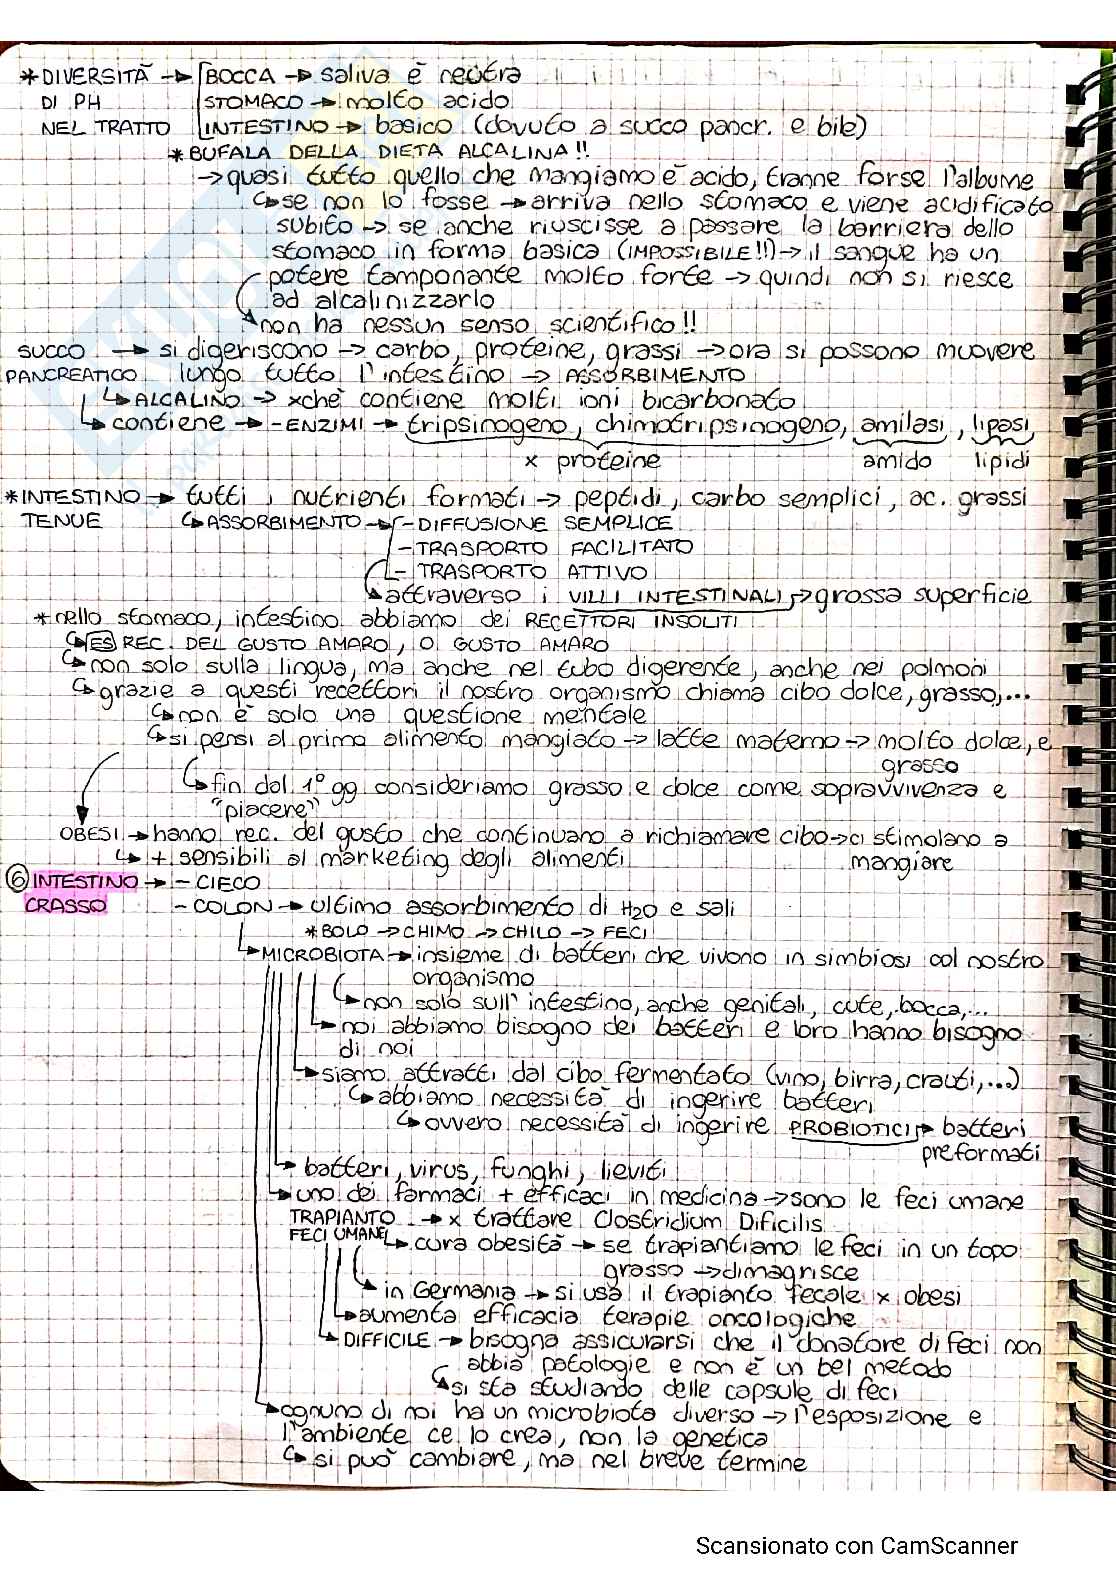 *DIVERSITÀ → BOCCA → saliva è neutra
DI PH STOMACO → molto acido
NEL TRATTO INTESTINO → basico (dovuto a succo pancr. e bile)
*BUFALA DELLA DIETA ALCALINA!!
→ quasi tutto quello che mangiamo è acido, tranne forse l'albume
↳ se non lo fosse → arriva nello stomaco e viene acidificato
subito → se anche riuscisse a passare la barriera dello
stomaco in forma basica (IMPOSSIBILE!!) → il sangue ha un
potere tamponante molto forte → quindi non si riesce
ad alcalinizzarlo
non ha nessun senso scientifico!!
SUCCO → si digeriscono → carbo, proteine, grassi → ora si possono muovere
PANCREATICO lungo tutto l'intestino → ASSORBIMENTO
↳ ALCALINO → xchè contiene molti ioni bicarbonato
↳ contiene → - ENZIMI → tripsinogeno, chimotripsinogeno, amilasi, lipasi,
x proteine amido lipidi
*INTESTINO → tutti i nutrienti formati → peptidi, carbo semplici, ac. grassi
TENUE ↳ ASSORBIMENTO → - DIFFUSIONE SEMPLICE
- TRASPORTO FACILITATO
- TRASPORTO ATTIVO
attraverso i VILLI INTESTINALI → grossa superficie
*nello stomaco, intestino abbiamo dei RECETTORI INSOLITI
↳ ES REC. DEL GUSTO AMARO, O GUSTO AMARO
↳ non solo sulla lingua, ma anche nel tubo digerente, anche nei polmoni
↳ grazie a questi recettori il nostro organismo chiama cibo dolce, grasso,...
↳ non è solo una questione mentale
↳ si pensi al primo alimento mangiato → latte materno → molto dolce, e
grasso
↳ fin dal 1° gg consideriamo grasso e dolce come sopravvivenza e
"piacere"
OBESI → hanno rec. del gusto che continuano a richiamare cibo → ci stimolano a
↳ + sensibili al marketing degli alimenti mangiare
⑥ INTESTINO → - CIECO
CRASSO - COLON → ultimo assorbimento di H2O e sali
*BOLO → CHIMO → CHILO → FECI
↳ MICROBIOTA → insieme di batteri che vivono in simbiosi col nostro
organismo
↳ non solo sull'intestino, anche genitali, cute, bocca,...
↳ noi abbiamo bisogno dei batteri e loro hanno bisogno
di noi
↳ siamo attratti dal cibo fermentato (vino, birra, crauti,...)
↳ abbiamo necessità di ingerire batteri
↳ ovvero necessità di ingerire PROBIOTICI → batteri
preformati
↳ batteri, virus, funghi, lieviti
↳ uno dei farmaci + efficaci in medicina → sono le feci umane
TRAPIANTO → x trattare Clostridium Dificilis
FECI UMANE ↳ cura obesità → se trapiantiamo le feci in un topo
grasso → dimagrisce
in Germania → si usa il trapianto fecale x obesi
↳ aumenta efficacia terapie oncologiche
↳ DIFFICILE → bisogna assicurarsi che il donatore di feci non
abbia patologie e non è un bel metodo
si sta studiando delle capsule di feci
↳ ognuno di noi ha un microbiota diverso → l'esposizione e
l'ambiente ce lo crea, non la genetica
↳ si può cambiare, ma nel breve termine
Scansionato con CamScanner